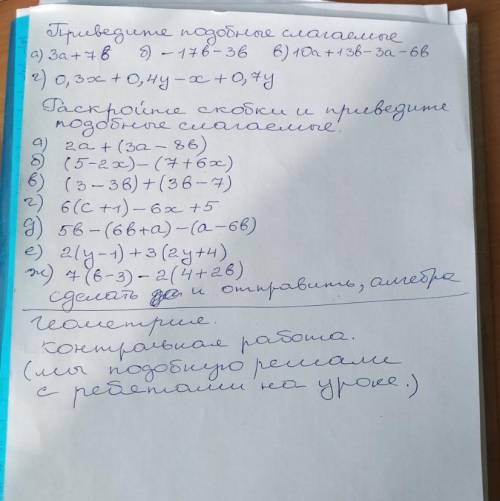 Приведите подобные слагаемые
а) 3а+7в б) -17в-3в в) 10а+13в-3а-6в
г) 0,3х+0,4у-х+0,7у
Раскройте скобки и приведите
подобные слагаемые.
а) 2а+(3а-8в)
б) (5-2х)-(7+6х)
в) (3-3в)+(3в-7)
г) 6(с+1)-6х+5
д) 5в-(6в+а)-(а-6в)
е) 2(у-1)+3(2у+4)
ж) 7(в-3)-2(4+2в)
сделать и отправить, алгебра
Геометрия.
Контрольная работа.
(мы подобную решали
с ребетами на уроке.)